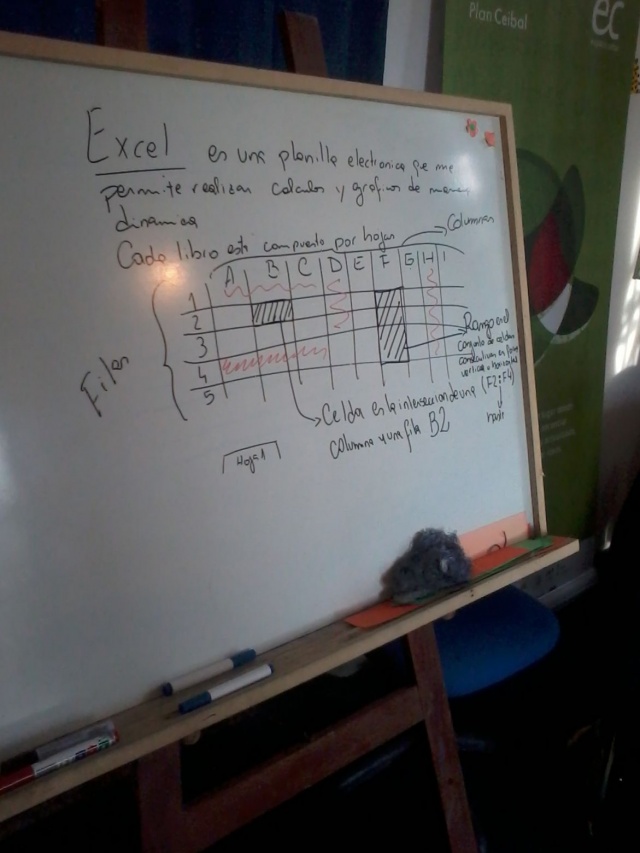 Plan Ceibal
ec
Excel es una planilla electronica que me
permite realizar calculos y graficos de manera
dinamica
Cada libro esta compuesto por hojas
Columnas
A B C D E F G H I
1
2
3
4
5
Filas
Rango es el
conjunto de celdas
consecutivas en forma
vertical u horizontal
(F2:F4)
hasta
Celda es la interseccion de una
columna y una fila B2
Hoja1